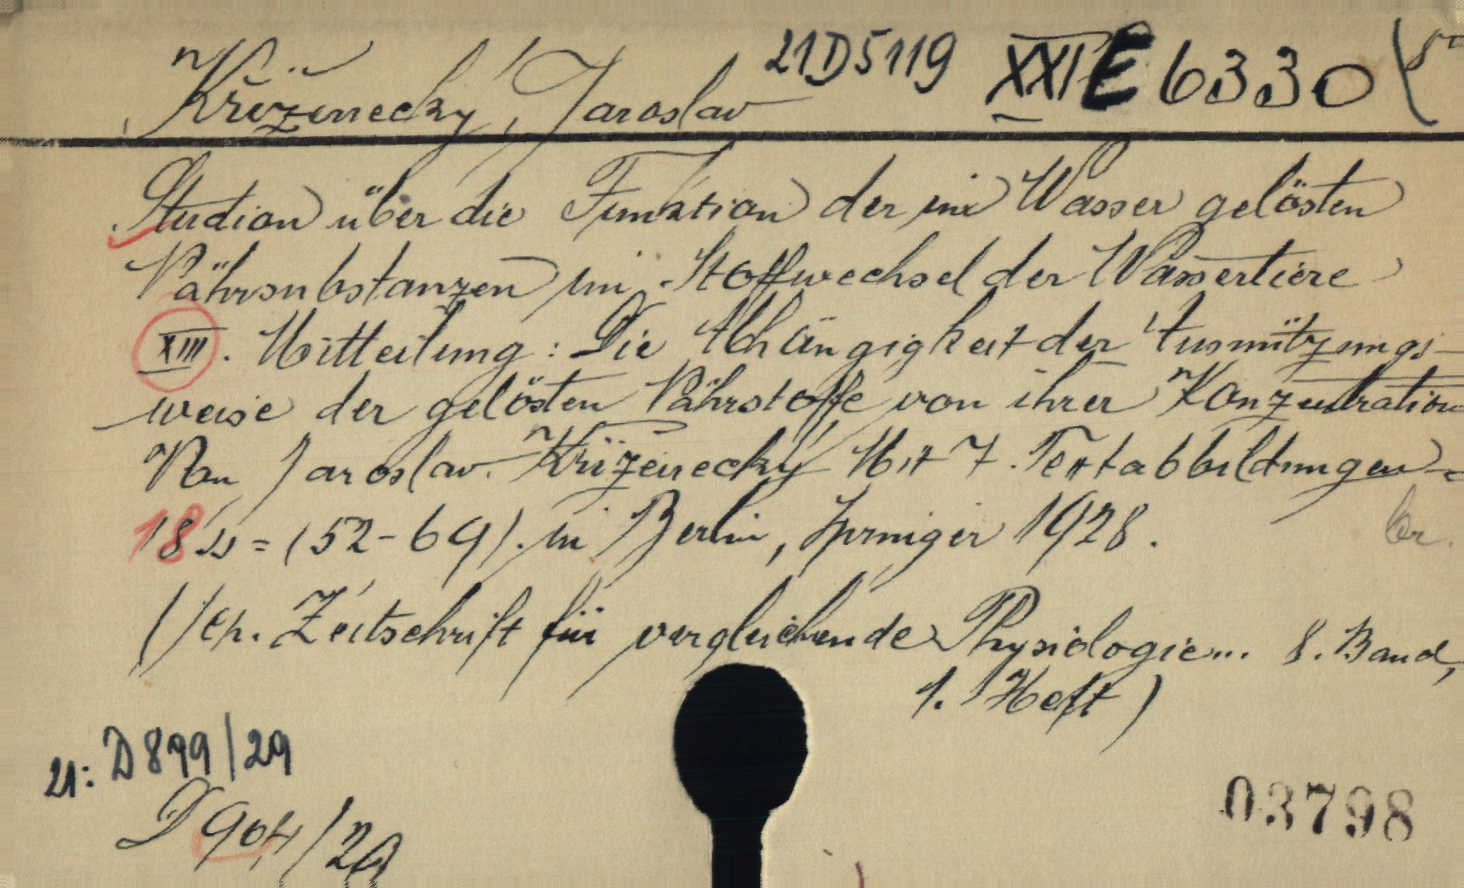 Kříženecký, Jaroslav 21D5119 XXI E 6330
Studien über die Funktion der im Wasser gelösten
Nährsubstanzen im Stoffwechsel der Wassertiere
XIII. Mitteilung: Die Abhängigkeit der Ausnützungs-
weise der gelösten Nährstoffe von ihrer Konzentration
Von Jaroslav Kříženecký Mit 7. Textabbildungen
18 = (52-69). in Berlin, Springer 1928. br.
Zeitschrift für vergleichende Physiologie... 8. Band,
1. Heft)
21: D 899/29
D 904/29
03798